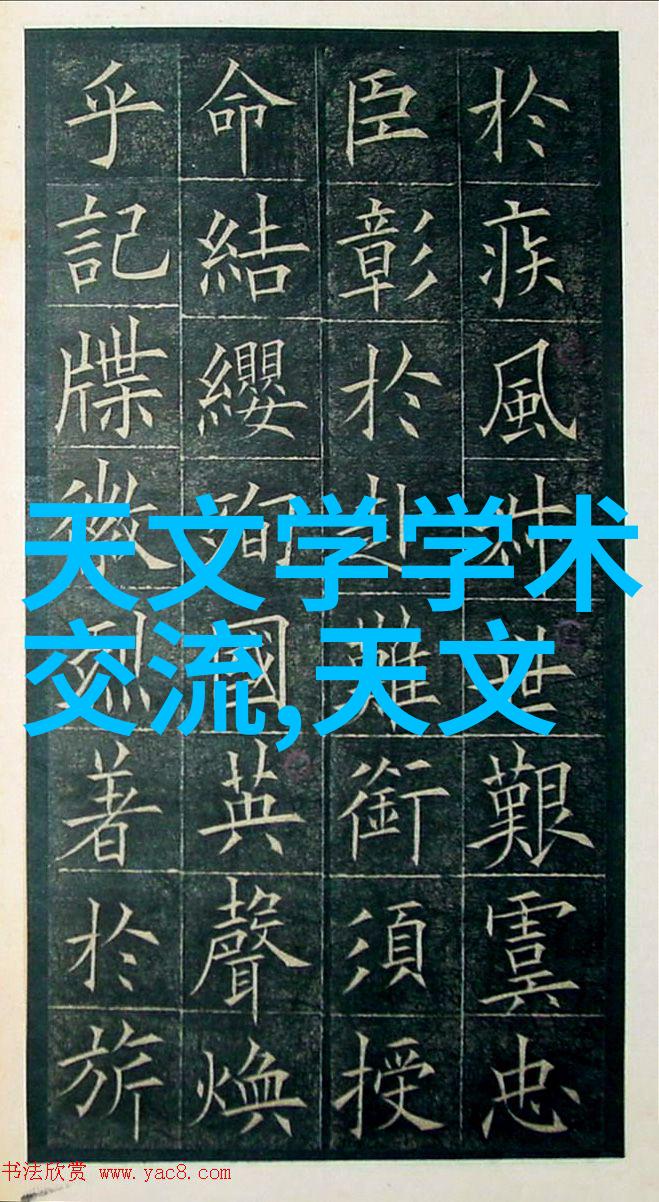 於疾風叔世艱虞忠
臣彰於赴難銜須授
命結纓殉國英聲煥
乎記牒徽烈著於旂
天文学学术
交流,天文
书法欣赏 www.yac8.com